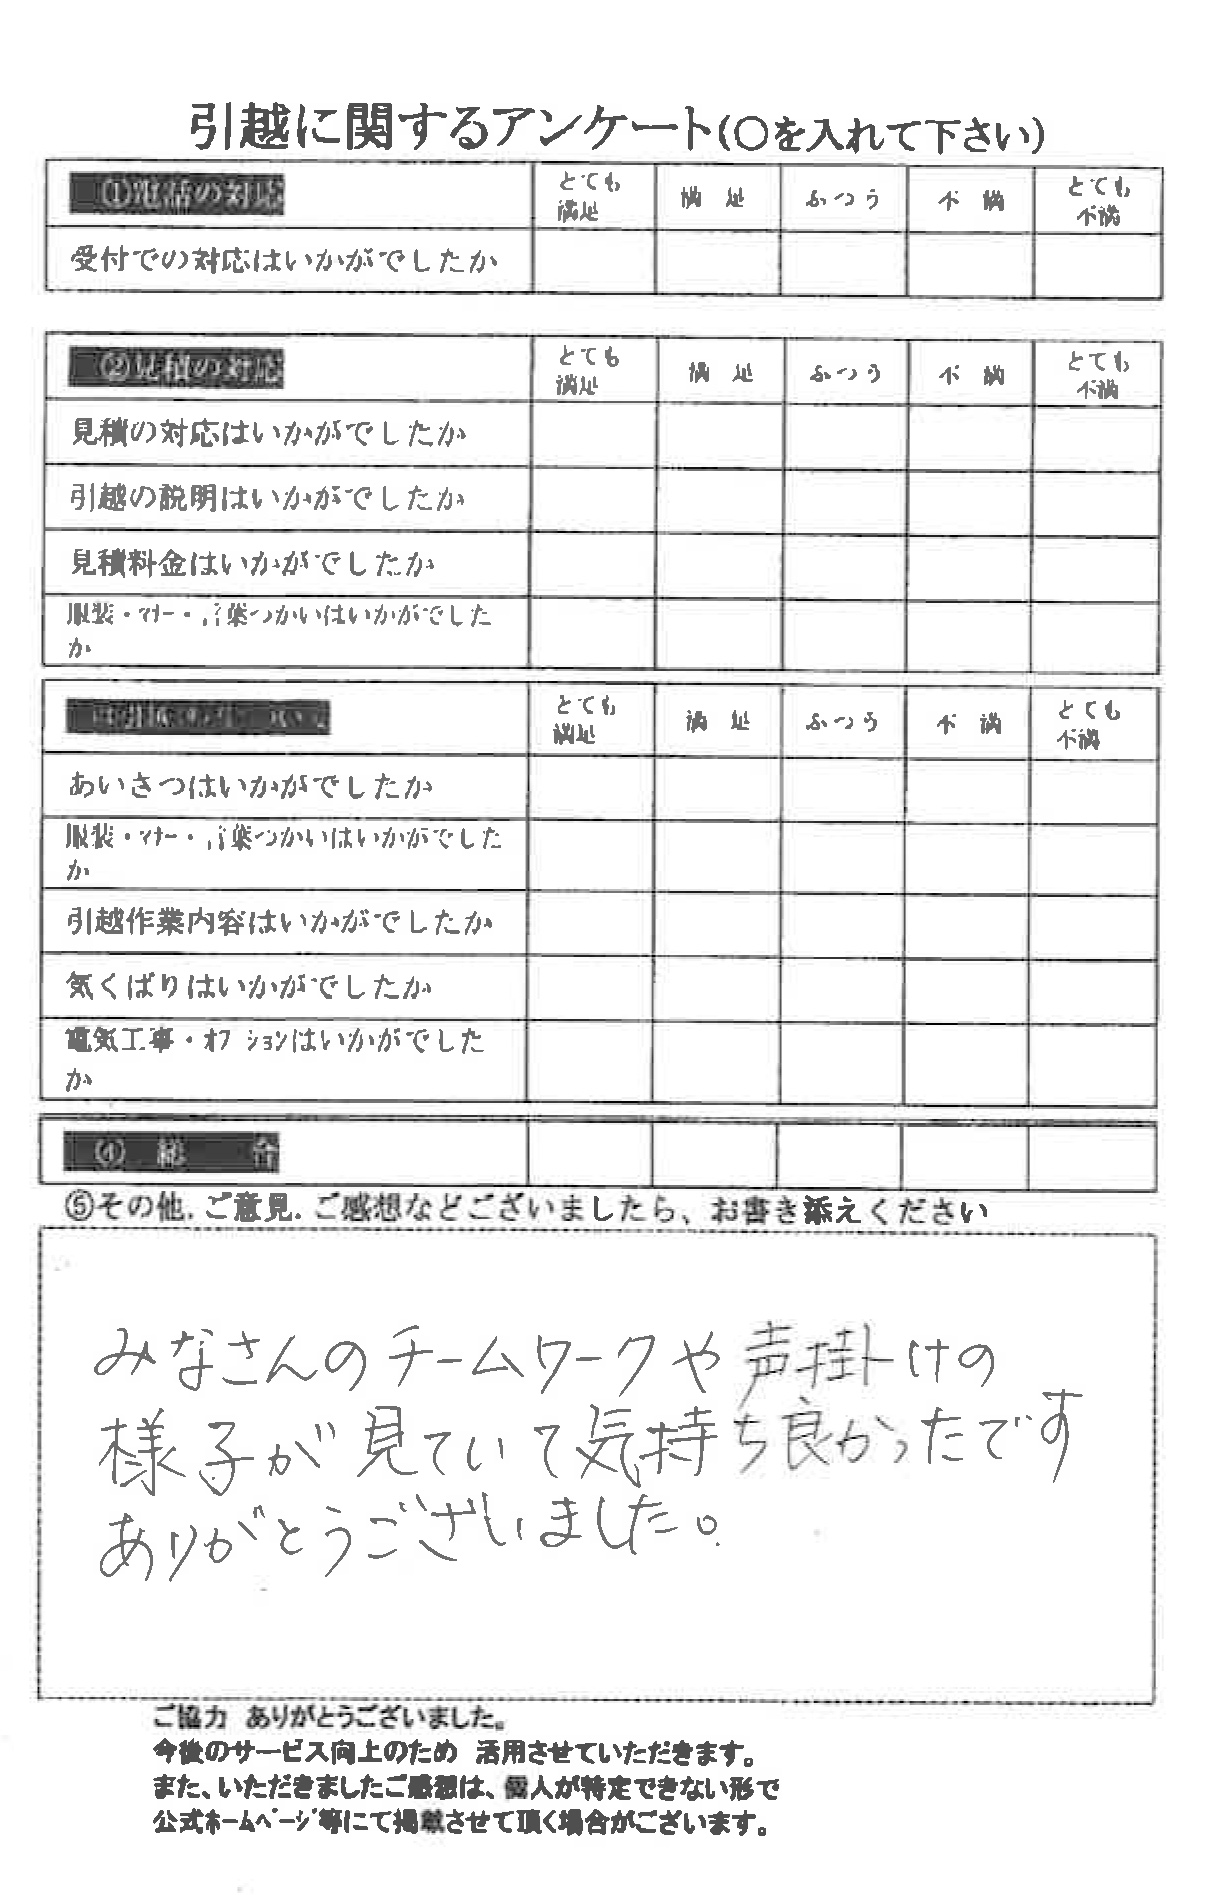 引越に関するアンケート(○を入れて下さい)
①電話の対応 とても満足 満足 ふつう 不満 とても不満
受付での対応はいかがでしたか
②見積の対応 とても満足 満足 ふつう 不満 とても不満
見積の対応はいかがでしたか
引越の説明はいかがでしたか
見積料金はいかがでしたか
服装・マナー・言葉つかいはいかがでした
か
とても満足 満足 ふつう 不満 とても不満
あいさつはいかがでしたか
服装・マナー・言葉つかいはいかがでした
か
引越作業内容はいかがでしたか
気くばりはいかがでしたか
電気工事・オプションはいかがでした
か
④総合
⑤その他.ご意見.ご感想などございましたら、お書き添えください
みなさんのチームワークや声掛けの
様子が見ていて気持ち良かったです
ありがとうございました。
ご協力 ありがとうございました。
今後のサービス向上のため 活用させていただきます。
また、いただきましたご感想は、個人が特定できない形で
公式ホームページ等にて掲載させて頂く場合がございます。